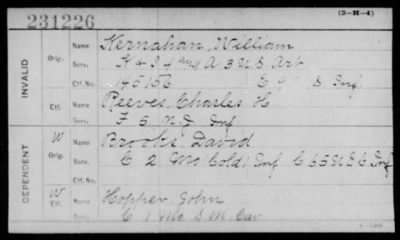 231226
(3-H-4)
INVALID
Orig. Name Kernahan, William
Serv. K & I 4 and A 3 U S Art
Ctf. No. 146156 S. Inf
Ctf. Name Reeves, Charles H
Serv. F 6 N J Inf
DEPENDENT
W Orig. Name Brooks, David
Serv. C 2 Mo Cold Inf C 65 U S C Inf
Ctf. No.
W Ctf. Name Hopper, John
Serv. C 1 Mo S M Cav